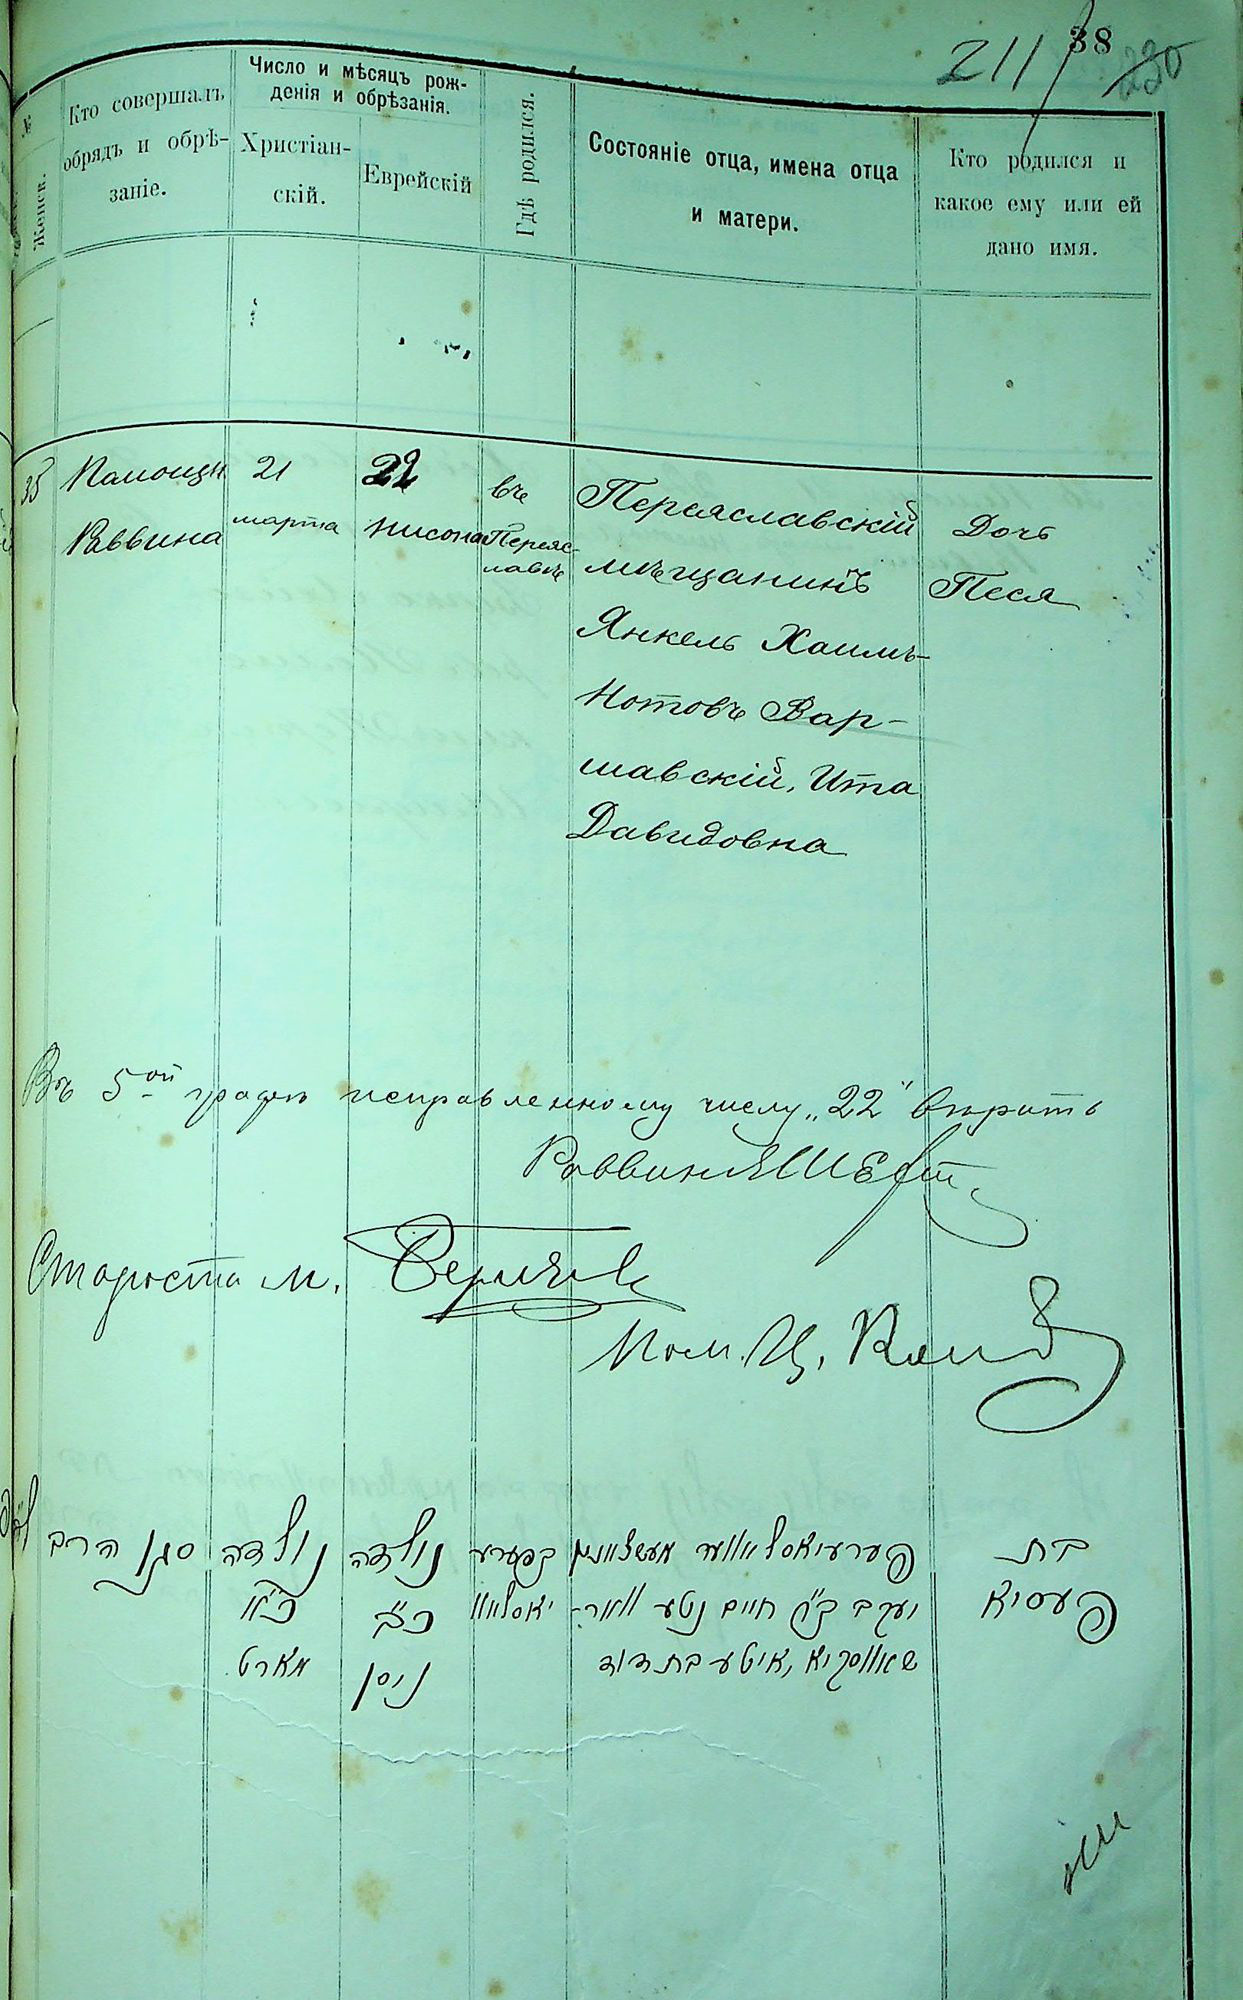 211
38
230
№
Женск.
Кто совершалъ
обрядъ и обрѣ-
заніе.
Число и мѣсяцъ рож-
денія и обрѣзанія.
Христіан-
скій.
Еврейскій
Гдѣ родился.
Состояніе отца, имена отца
и матери.
Кто родился и
какое ему или ей
дано имя.
35
Помощн.
Раввина
21
марта
22
нисона
въ
Переяс-
лавѣ
Переяславскій
мѣщанинъ
Янкель Хаимъ-
Нотовъ Вар-
шавскій, Ита
Давидовна
Дочь
Песя
Въ 5ой графѣ исправленному числу „22" вѣрить
Раввинъ
Староста М.
Пом. Ц.
סגן הרב
נולדה
כ"א
מארט
נולדה
כ"ב
ניסן
בפערע
יאסלאוו
פערעיאסלאווער מעשצאנין
יעקב ב"ר חיים נטע וואר-
שאווסקיא, איטע בת דוד
בת
פעסיא